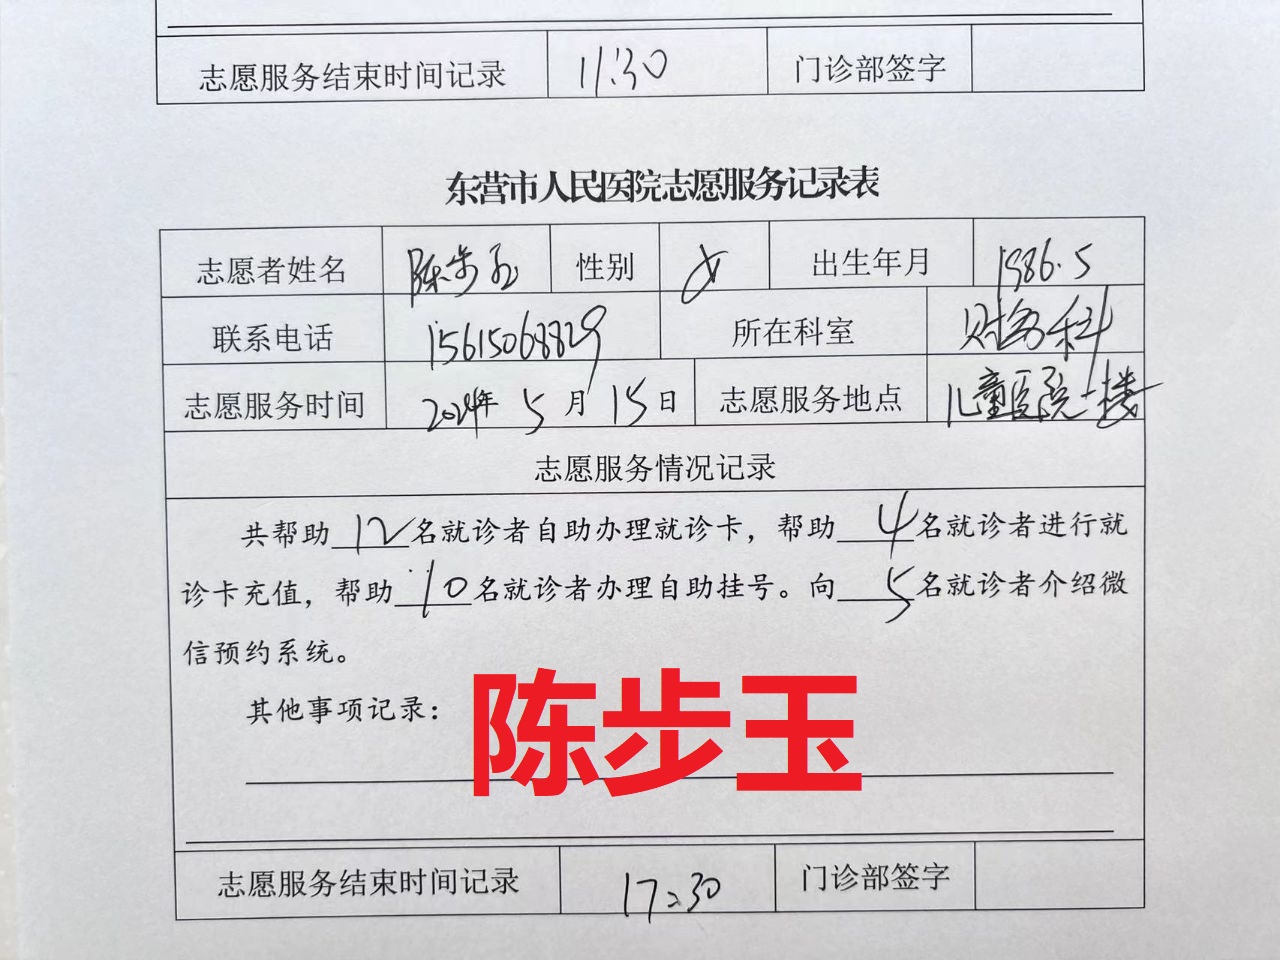 志愿服务结束时间记录 11:30 门诊部签字
东营市人民医院志愿服务记录表
志愿者姓名 陈步玉 性别 女 出生年月 1986.5
联系电话 15615068829 所在科室 财务科
志愿服务时间 2024年 5 月 15 日 志愿服务地点 儿童医院一楼
志愿服务情况记录
共帮助 12 名就诊者自助办理就诊卡，帮助 4 名就诊者进行就
诊卡充值，帮助 10 名就诊者办理自助挂号。向 5 名就诊者介绍微
信预约系统。
其他事项记录：
陈步玉
志愿服务结束时间记录 17:30 门诊部签字